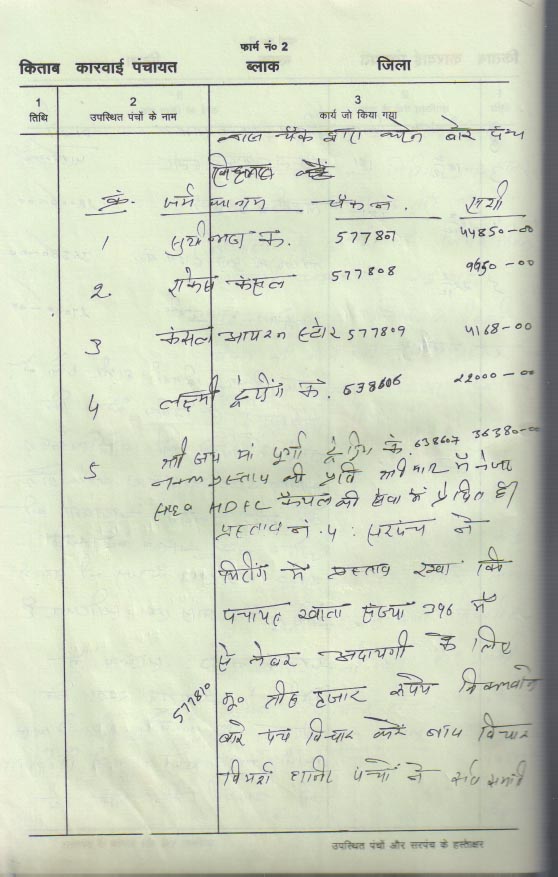 फार्म नं० 2
किताब कारवाई पंचायत ब्लाक जिला
1 2 3
तिथि उपस्थित पंचों के नाम कार्य जो किया गया
चैक द्वारा बारे
क्रं. फर्म का नाम चैक नं. राशी
1 के. 577807 44850-00
2. राकेश कंसल 577808 9950-00
3 कंसल आयरन स्टोर 577809 4168-00
4 लक्ष्मी ट्रेडिंग के. 638606 22000-00
5 श्री जय मां दुर्गा ट्रेडिंग के. 638607 36380-00
नकल प्रस्ताव की प्रति
HDFC कैथल की सेवा में प्रेषित है।
प्रस्ताव नं. 4: सरपंच ने
मिटींग में प्रस्ताव रखा कि
पंचायत खाता संख्या 296 में
से लेबर अदायगी के लिए
577810 रू० तीस हजार रूपये निकलवाने
बारे पंच विचार करें बाद विचार
विमर्श पंचों ने सर्व समति
उपस्थित पंचों और सरपंच के हस्ताक्षर